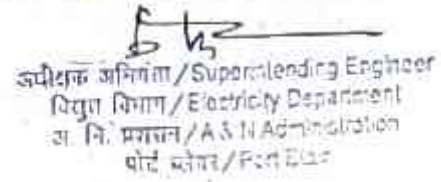 अधीक्षक अभियंता/Superintending Engineer
विद्युत विभाग/Electricity Department
अं. नि. प्रशासन/A & N Administration
पोर्ट ब्लेयर/Port Blair